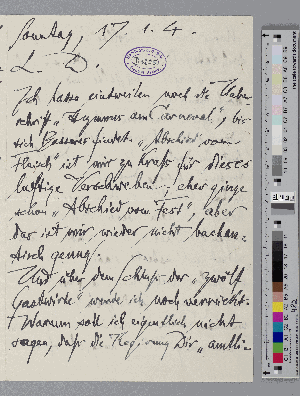 Sonntag, 17. 1. 4.
L. D.
Ich lasse einstweilen noch die Über-
schrift „ zum Carneval", bis
sich Besseres findet. „Abschied vom
Fleisch" ist mir zu kraß für dieses
luftige Verschweben. Eher ginge
schon „Abschied vom Fest", aber
das ist mir wieder nicht bachan-
tisch genug.
Und über den Schluß der „zwölf
Gastwirte" werde ich noch verrückt.
Warum soll ich eigentlich nicht
sagen, daß die Regirung Dir „amtli-